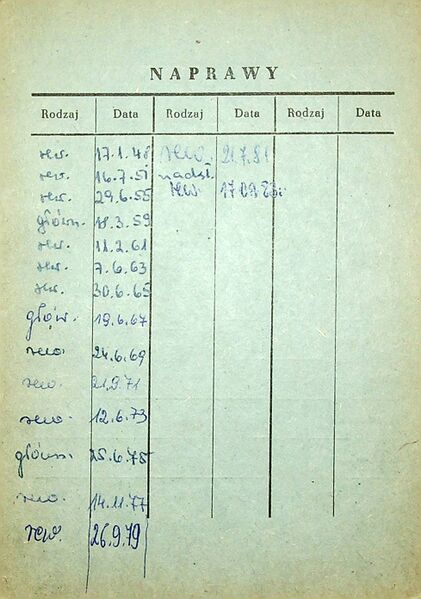 NAPRAWY
Rodzaj Data Rodzaj Data Rodzaj Data
rew. 17.1.48 rew. 2.7.81
rew. 16.7.51 nadzl.
rew. 29.6.55 rew. 17.09.83r.
główn. 18.3.59
rew. 11.2.61
rew. 7.6.63
rew. 30.6.65
główn. 19.6.67
rew. 24.6.69
rew. 21.9.71
rew. 12.6.73
główn. 25.6.75
rew. 14.11.77
rew. 26.9.79